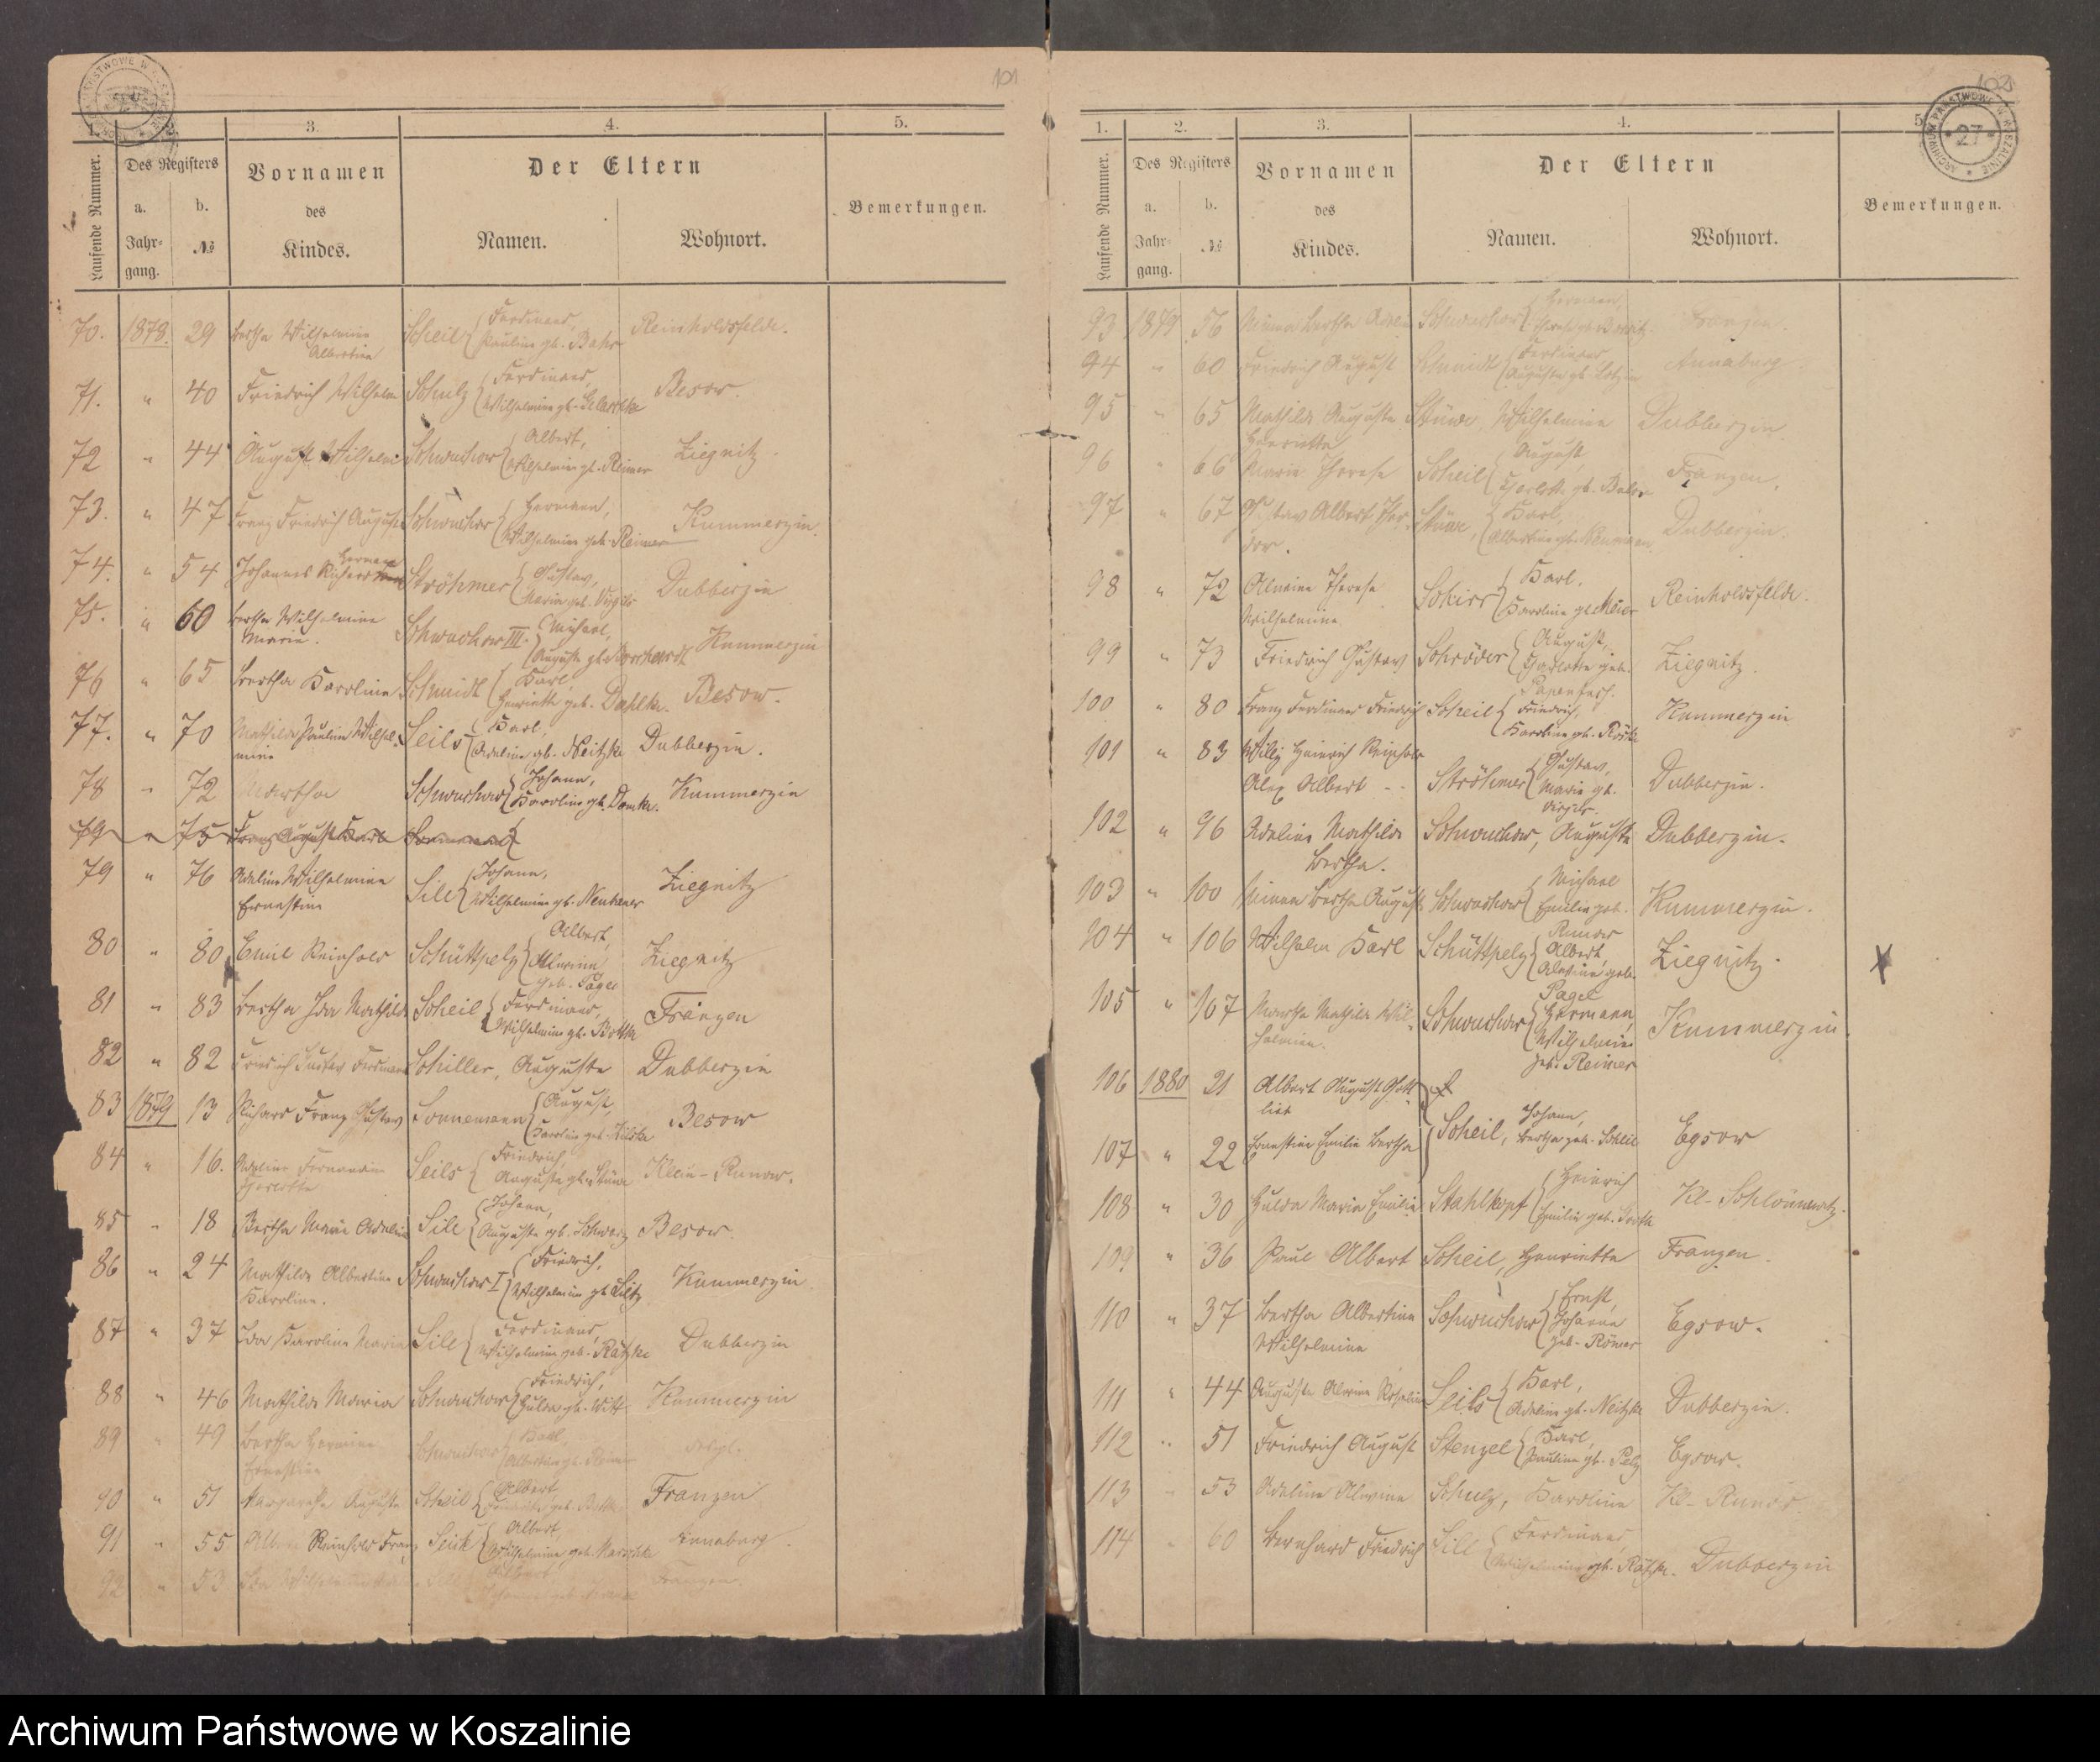 101
1.
2.
3.
4.
5.
Laufende Nummer.
Des Registers
a.
Jahr=
gang.
b.
№
Vornamen
des
Kindes.
Der Eltern
Namen.
Wohnort.
Bemerkungen.
70. 1878. 29 Bertha Wilhelmine Scheil Ferdinand, Reinholdsfelde.
Albertine Pauline gb. Bahr
71. " 40 Friedrich Wilhelm Schulz Ferdinand, Besow.
Wilhelmine gb.
72 " 44 August Wilhelm Schwuchow Albert, Ziegnitz.
Wilhelmine gb. Reimer
73. " 47 Franz Friedrich August Schwuchow Hermann, Kummerzin.
Wilhelmine geb. Reimer
74. " 54 Johannes Richard Hermann Ströhmer Gustav, Dubberzin
Marie geb. Virgils
75. " 60 Bertha Wilhelmine Schwuchow III. Michael, Kummerzin
Marie. Auguste gb. Borchardt
76 " 65 Bertha Karoline Schmidt Karl, Besow.
Henriette geb. Dahlke.
77. " 70 Mathilde Pauline Wilhel- Seils Karl, Dubberzin.
mine Adeline gb. Neitzke
78 " 72 Schwuchow Johann, Kummerzin
Karoline gb. Damke.
79 " 75 Franz August Karl
79 " 76 Adeline Wilhelmine Sill Johann, Ziegnitz
Ernestine Wilhelmine gb.
80 " 80 Emil Reinhold Schüttpelz Albert, Ziegnitz
Alwine
geb. Pagel
81 " 83 Bertha Ida Mathilde Scheil Ferdinand, Franzen
Wilhelmine gb. Bottke
82 " 82 Friedrich Gustav Ferdinand Schiller, Auguste Dubberzin
83 1879 13 Richard Franz Gustav Sonnemann August, Besow
Karoline geb.
84 " 16. Adeline Fernandine Seils Friedrich, Klein-Runow.
Charlotte Auguste gb. Stüwe
85 " 18 Bertha Marie Adeline Sill Johann, Besow.
Auguste gb. Schwarz
86 " 24 Mathilde Albertine Schwuchow I Friedrich, Kummerzin
Karoline. Wilhelmine gb.
87 " 37 Ida Karoline Marie Sill Ferdinand, Dubberzin
Wilhelmine geb. Rätzke
88 " 46 Mathilde Maria Schwuchow Friedrich, Kummerzin
Hulda gb. Witt
89 " 49 Bertha Hermine Schwuchow Karl, desgl.
Ernestine Albertine gb. Reimer
90 " 51 Margarethe Auguste Scheil Albert Franzen
91 " 55 Albert Reinhold Franz Albert, Annaburg.
Wilhelmine geb.
92 " 53 Ida Franzen.
102
1.
2.
3.
4.
5.
Laufende Nummer.
Des Registers
a.
Jahr=
gang.
b.
№
Vornamen
des
Kindes.
Der Eltern
Namen.
Wohnort.
Bemerkungen.
ARCHIWUM PAŃSTWOWE W KOSZALINIE
27
93 1879 56 Minna Bertha Adeline Schwuchow Hermann, Franzen.
94 " 60 Friedrich August Schmidt Ferdinand, Annaburg.
Auguste gb.
95 " 65 Mathilde Auguste Stüwe, Wilhelmine Dubberzin
Henriette
96 " 66 Marie Therese Scheil August, Franzen.
Charlotte gb.
97 " 67 Gustav Albert Theo- Stüwe, Karl, Dubberzin.
dor. Albertine gb. Neumann
98 " 72 Alwine Therese Karl. Reinholdsfelde.
Wilhelmine Karoline gb. Meier
99 " 73 Friedrich Gustav Schröder August, Ziegnitz.
Charlotte geb.
Papenfuß.
100 " 80 Franz Ferdinand Friedrich Scheil Friedrich, Kummerzin
Karoline gb. Röske
101 " 83 Willy Heinrich Reinhold Gustav,
Alex Albert -- Ströhmer Marie gb. Dubberzin.
Virgils.
102 " 96 Adeline Mathilde Schwuchow, Auguste Dubberzin.
Bertha.
103 " 100 Minna Bertha Auguste Schwuchow Michael Kummerzin.
Emilie geb.
Runow
104 " 106 Wilhelm Karl Schüttpelz Albert Ziegnitz.
Alwine geb.
Pagel
105 " 107 Martha Mathilde Wil- Schwuchow Hermann, Kummerzin.
helmine. Wilhelmine
geb. Reimer
106 1880 21 Albert August Gott-
lieb
107 " 22 Ernestine Emilie Bertha Scheil, Johann, Egsow
Bertha geb. Scheil
108 " 30 Hulda Maria Emilie Stahlkopf Heinrich Kl-Schlönnwitz.
Emilie geb.
109 " 36 Paul Albert Scheil, Henriette Franzen.
110 " 37 Bertha Albertine Schwuchow Ernst, Egsow.
Wilhelmine Johanne
geb. Römer
111 " 44 Auguste Alwine Rosaline Seils Karl, Dubberzin.
Adeline gb. Neitzke
112 " 51 Friedrich August Stenzel Karl, Egsow.
Pauline gb. Pelz
113 " 53 Adeline Alwine Schulz, Karoline Kl-Runow
114 60 Bernhard Friedrich Sill Ferdinand, Dubberzin
Wilhelmine gb. Rätzke.
Archiwum Państwowe w Koszalinie